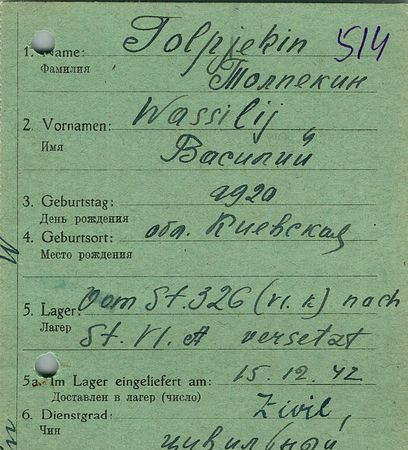 1. Name: Tolpjekin 514
Фамилия Толпекин
2. Vornamen: Wassilij
Имя Василий
3. Geburtstag: 1920
День рождения
4. Geburtsort: обл. Киевская
Место рождения
5. Lager: Vom St. 326 (VI. K) nach
Лагер St. VI. A versetzt
5a. Im Lager eingeliefert am: 15.12.42
Доставлен в лагер (число)
6. Dienstgrad: Zivil,
Чин цивильный